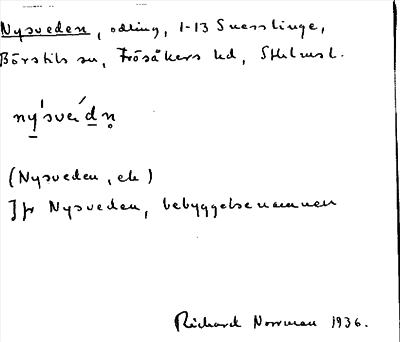 Nysveden, odling, 1-13 Snesslinge,
Börstils sn, Frösåkers hd, Sthlms l.
ny'svei´dn̥
(Nysveden, ek)
Jfr Nysveden, bebyggelsenamnen
Richard Norrman 1936.